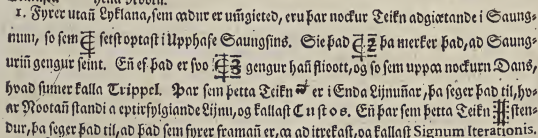 1. Fyrer utañ Lyklana, sem ꜳdur er um̃gieted, eru þar nockur Teikn adgiætande i Saung-
num, so sem ₵ sest optast i Upphafe Saungsins. Sie þad ₵ 2 þa merker þad, ad Saung-
uriñ gengur seint. Eñ ef þad er svo ₵ 2 gengur hañ flioott, og so sem uppꜳ nockurn Dans,
hvad sumer kalla Trippel. Þar sem þetta Teikn er i Enda Lijnuñar, þa seger þad til, hv-
ar Nootañ standi a eptirfylgiande Lijnu, og kallast Custos. Eñ þar sem þetta Teikn sten-
dur, þa seger þad til, ad þad sem fyrer framañ er, ꜳ ad itrekast, og kallast Signum Iterationis.